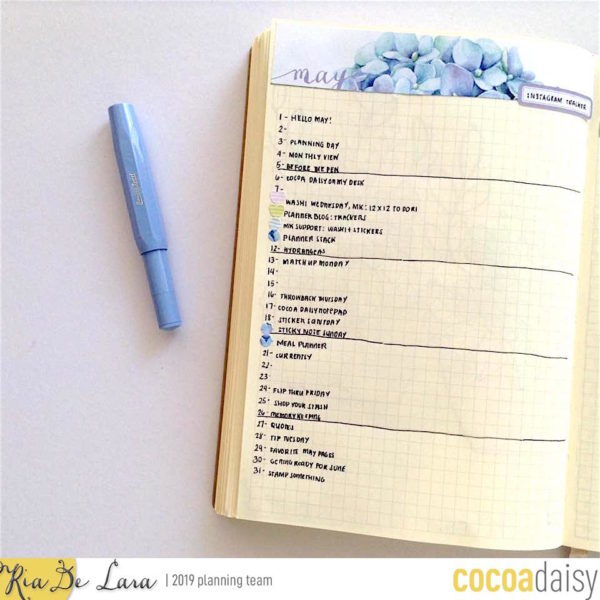 may
INSTAGRAM TRACKER
1- HELLO MAY!
2-
3- PLANNING DAY
4- MONTHLY VIEW
5- BEFORE THE PEN
6- COCOA DAILY ON MY DESK
7-
WASHI WEDNESDAY, MK: 12X12 TO DORI
PLANNER BLOG: TRACKERS
MK SUPPORT: WASHI + STICKERS
PLANNER STACK
12- HYDRANGEAS
13- MATCH UP MONDAY
14-
15-
16- THROWBACK THURSDAY
17- COCOA DAILY NOTEPAD
18- STICKER SATURDAY
STICKY NOTE SUNDAY
MEAL PLANNER
21- CURRENTLY
22-
23-
24- FLIP THRU FRIDAY
25- SHOP YOUR STASH
26- MEMORY KEEPING
27- QUOTES
28- TIP TUESDAY
29- FAVORITE MAY PAGES
30- GETTING READY FOR JUNE
31- STAMP SOMETHING
Ria De Lara | 2019 planning team
cocoadaisy